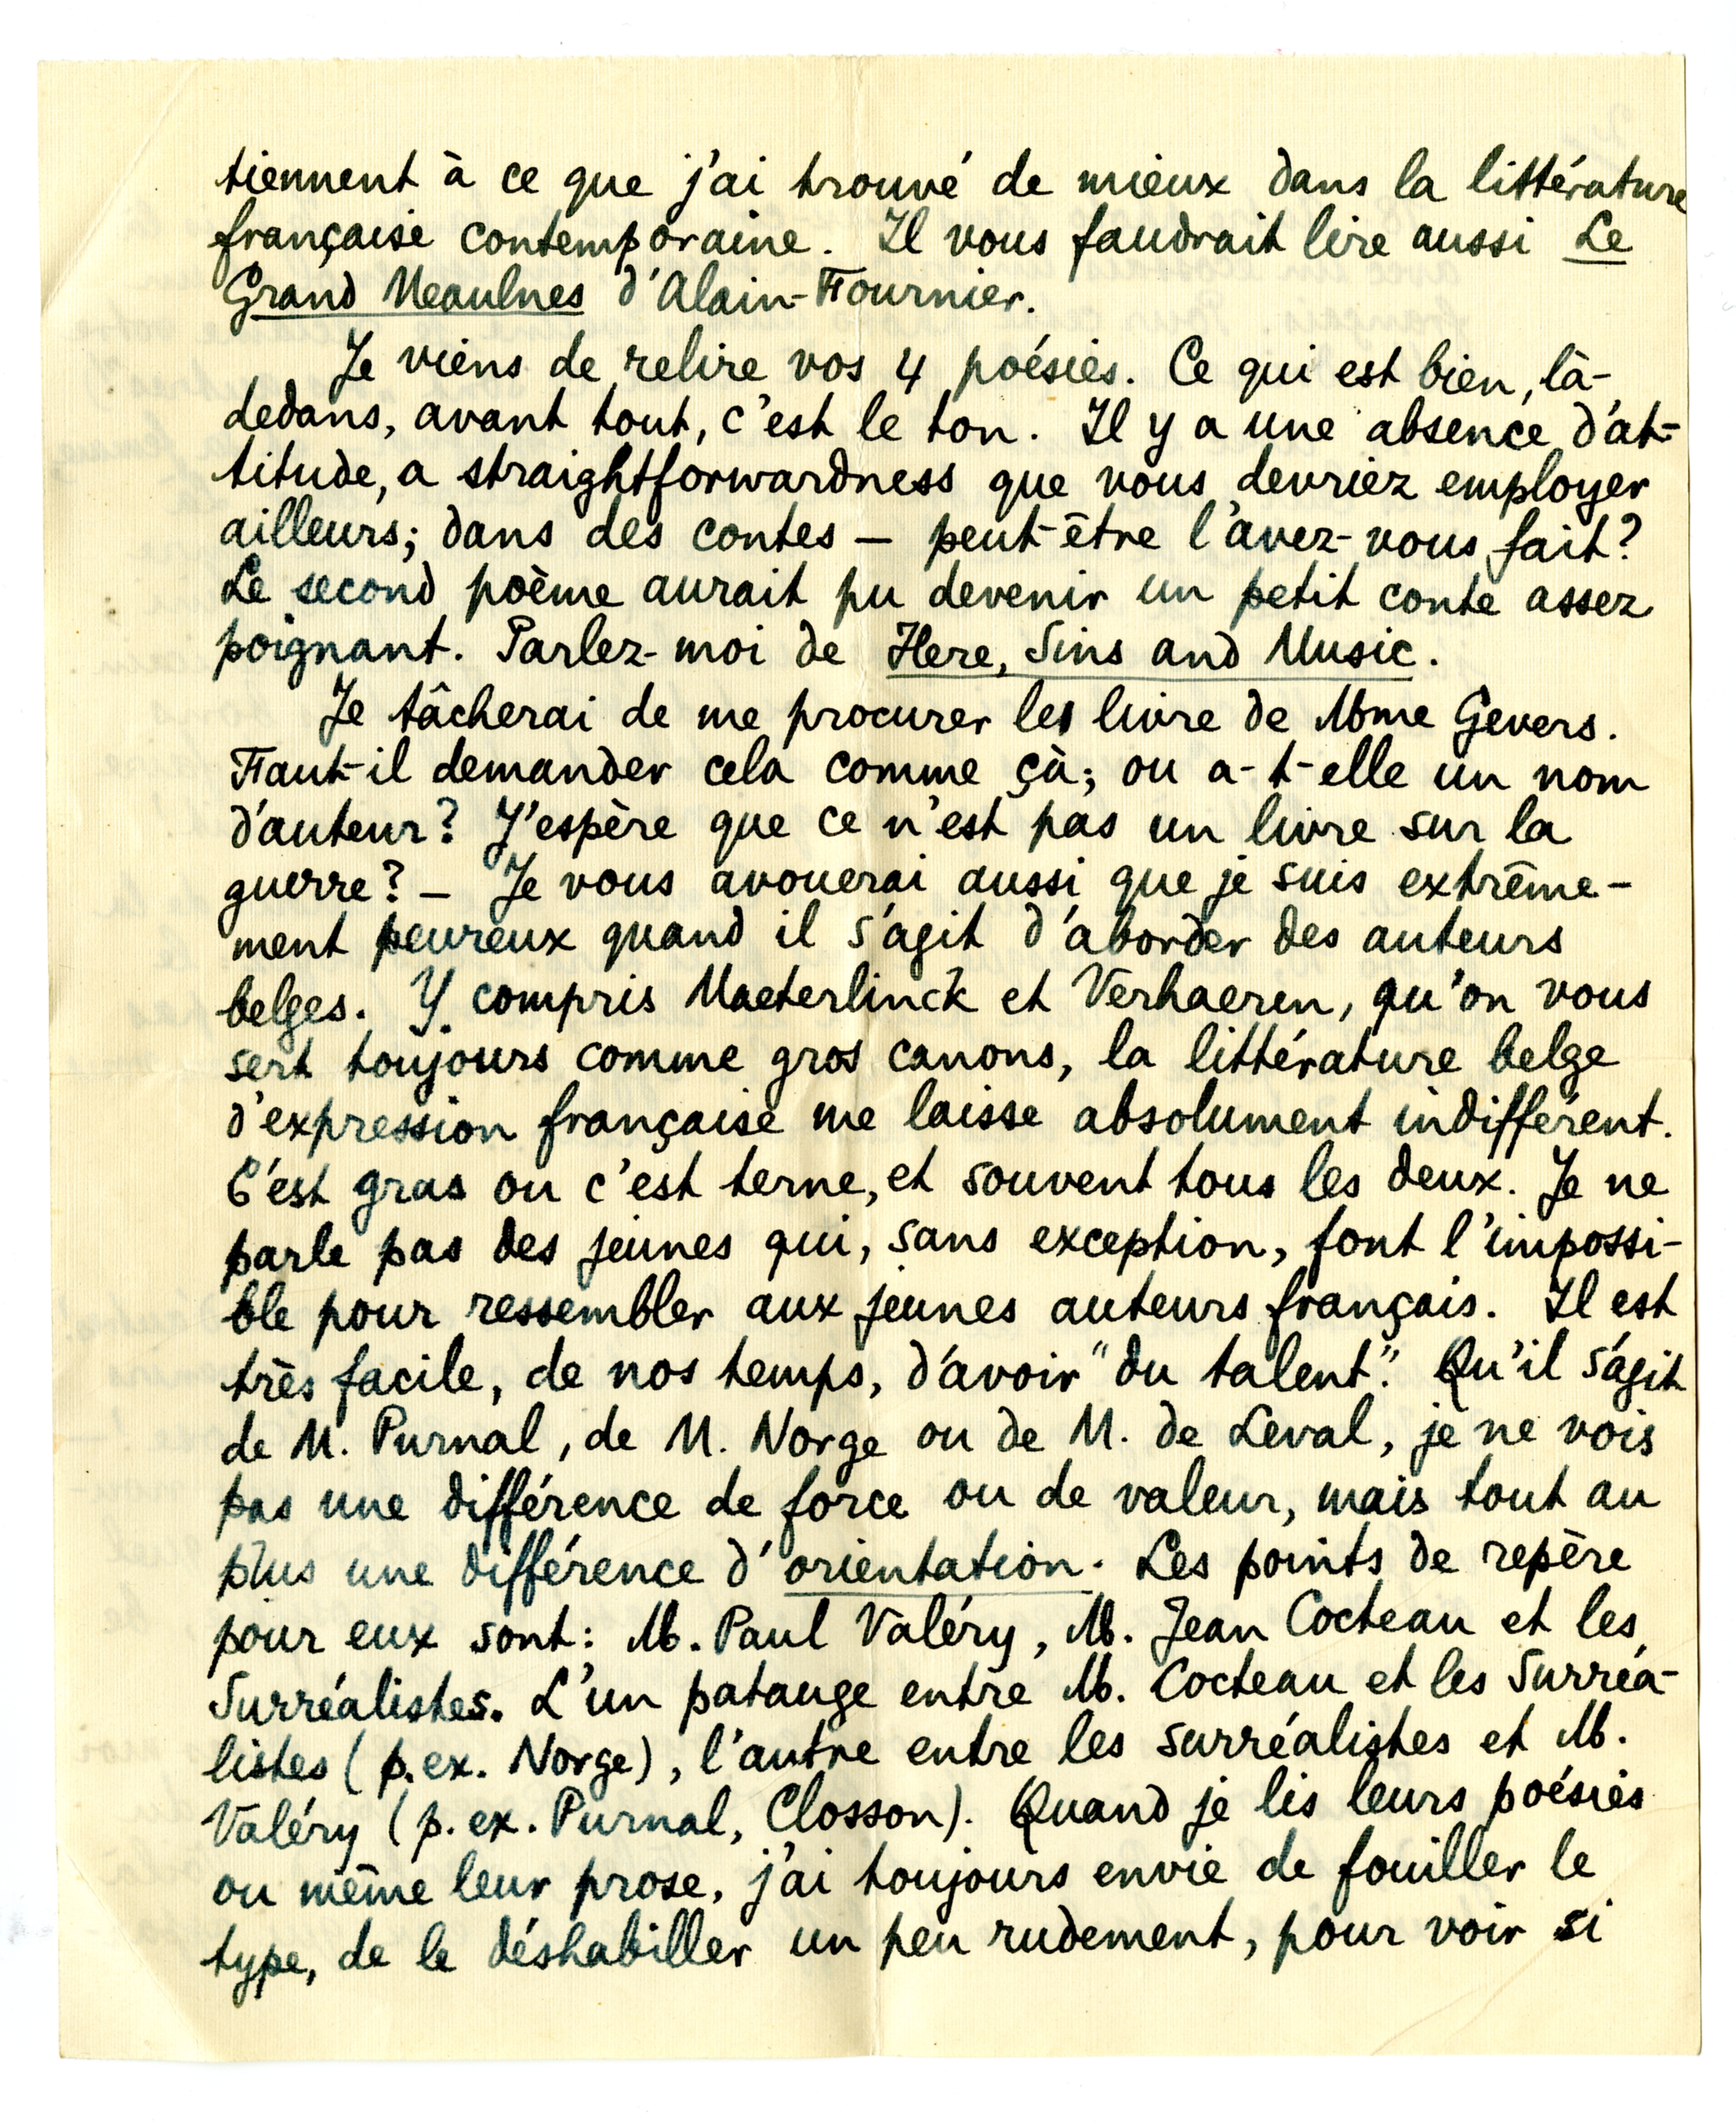 tiennent à ce que j'ai trouvé de mieux dans la littérature
française contemporaine. Il vous faudrait lire aussi Le
Grand Meaulnes d'Alain-Fournier.
Je viens de relire vos 4 poésies. Ce qui est bien, là-
dedans, avant tout, c'est le ton. Il y a une absence d'at-
titude, a straightforwardness que vous devriez employer
ailleurs; dans des contes — peut-être l'avez-vous fait?
Le second poème aurait pu devenir un petit conte assez
poignant. Parlez-moi de Here, Sins and Music.
Je tâcherai de me procurer les livre de Mme Gevers.
Faut-il demander cela comme çà; ou a-t-elle un nom
d'auteur? J'espère que ce n'est pas un livre sur la
guerre? — Je vous avouerai aussi que je suis extrême-
ment peureux quand il s'agit d'aborder des auteurs
belges. Y compris Maeterlinck et Verhaeren, qu'on vous
sert toujours comme gros canons, la littérature belge
d'expression française me laisse absolument indifférent.
C'est gras ou c'est terne, et souvent tous les deux. Je ne
parle pas des jeunes qui, sans exception, font l'impossi-
ble pour ressembler aux jeunes auteurs français. Il est
très facile, de nos temps, d'avoir "du talent". Qu'il s'agit
de M. Purnal, de M. Norge ou de M. de Leval, je ne vois
pas une différence de force ou de valeur, mais tout au
plus une différence d'orientation. Les points de repère
pour eux sont: M. Paul Valéry, M. Jean Cocteau et les
Surréalistes. L'un patauge entre M. Cocteau et les Surréa-
listes (p. ex. Norge), l'autre entre les surréalistes et M.
Valéry (p. ex. Purnal, Closson). Quand je lis leurs poésies
ou même leur prose, j'ai toujours envie de fouiller le
type, de le déshabiller un peu rudement, pour voir si